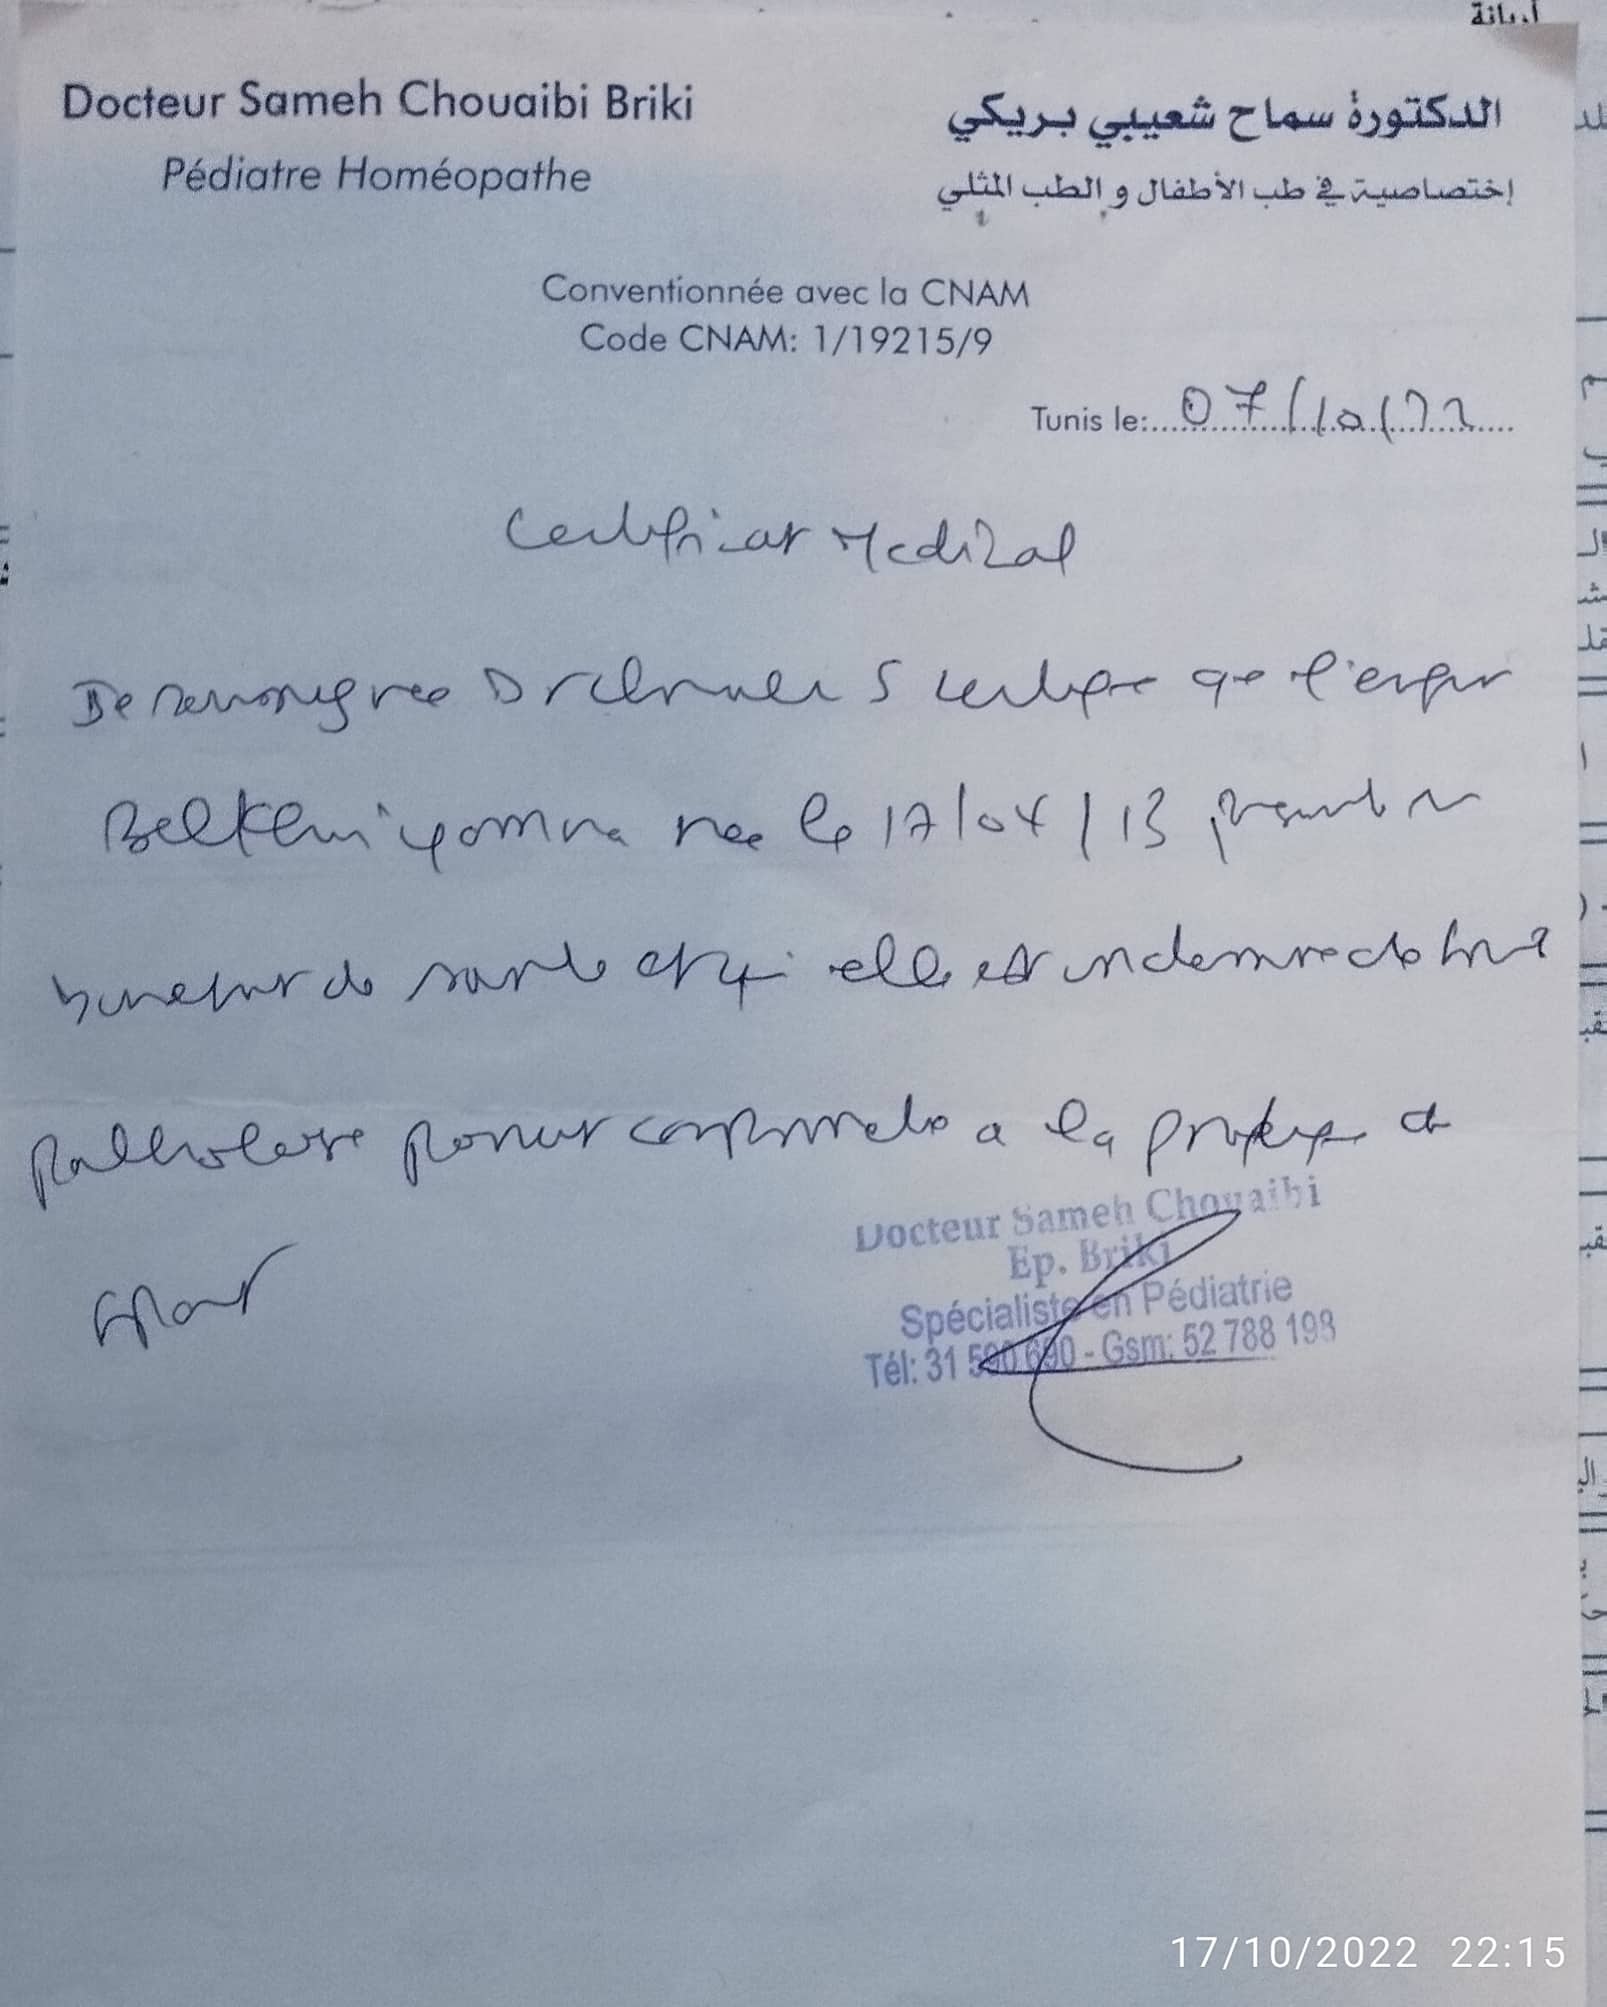 أريانة
Docteur Sameh Chouaibi Briki
Pédiatre Homéopathe
الدكتورة سماح شعيبي بريكي
إختصاصية في طب الأطفال و الطب المثلي
Conventionnée avec la CNAM
Code CNAM: 1/19215/9
Tunis le: 07/10/22
Certificat Medical
Je soussignée Dr Chouaibi S certifie que l'enfant
Belkhiri née le 17/04/13 présente un
bon etat de santé et qu'elle est indemne de toute
pathologie pouvant a la pratique de
sport
Docteur Sameh Chouaibi
Ep. Briki
Spécialiste en Pédiatrie
Tél: 31 590 690 - Gsm: 52 788 198
17/10/2022 22:15